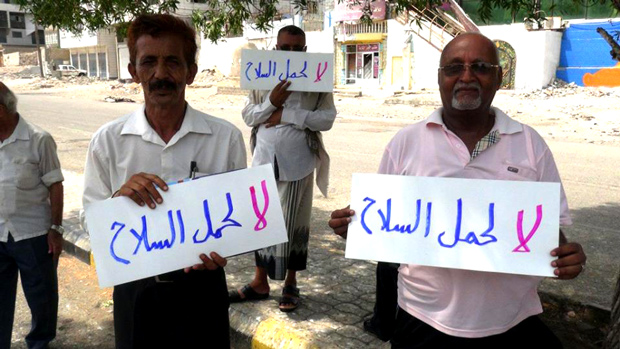 لا لحمل السلاح
لا لحمل السلاح
لا لحمل السلاح